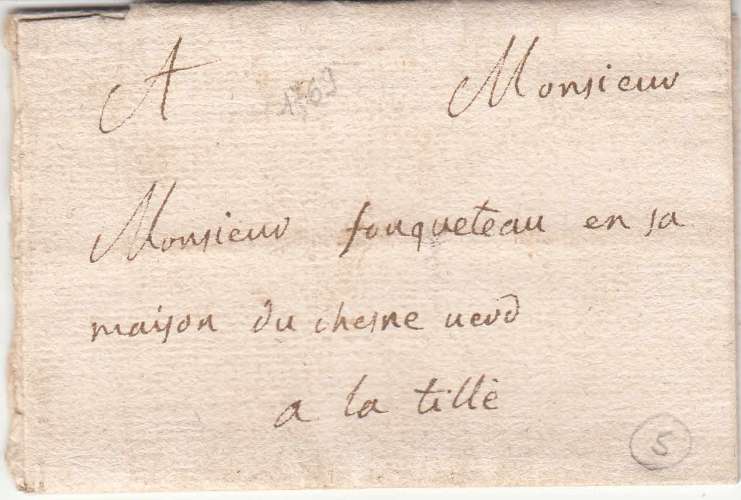 A Monsieur
1769
Monsieur fouqueteau en sa
maison du chesne uerd
a la tillè
5